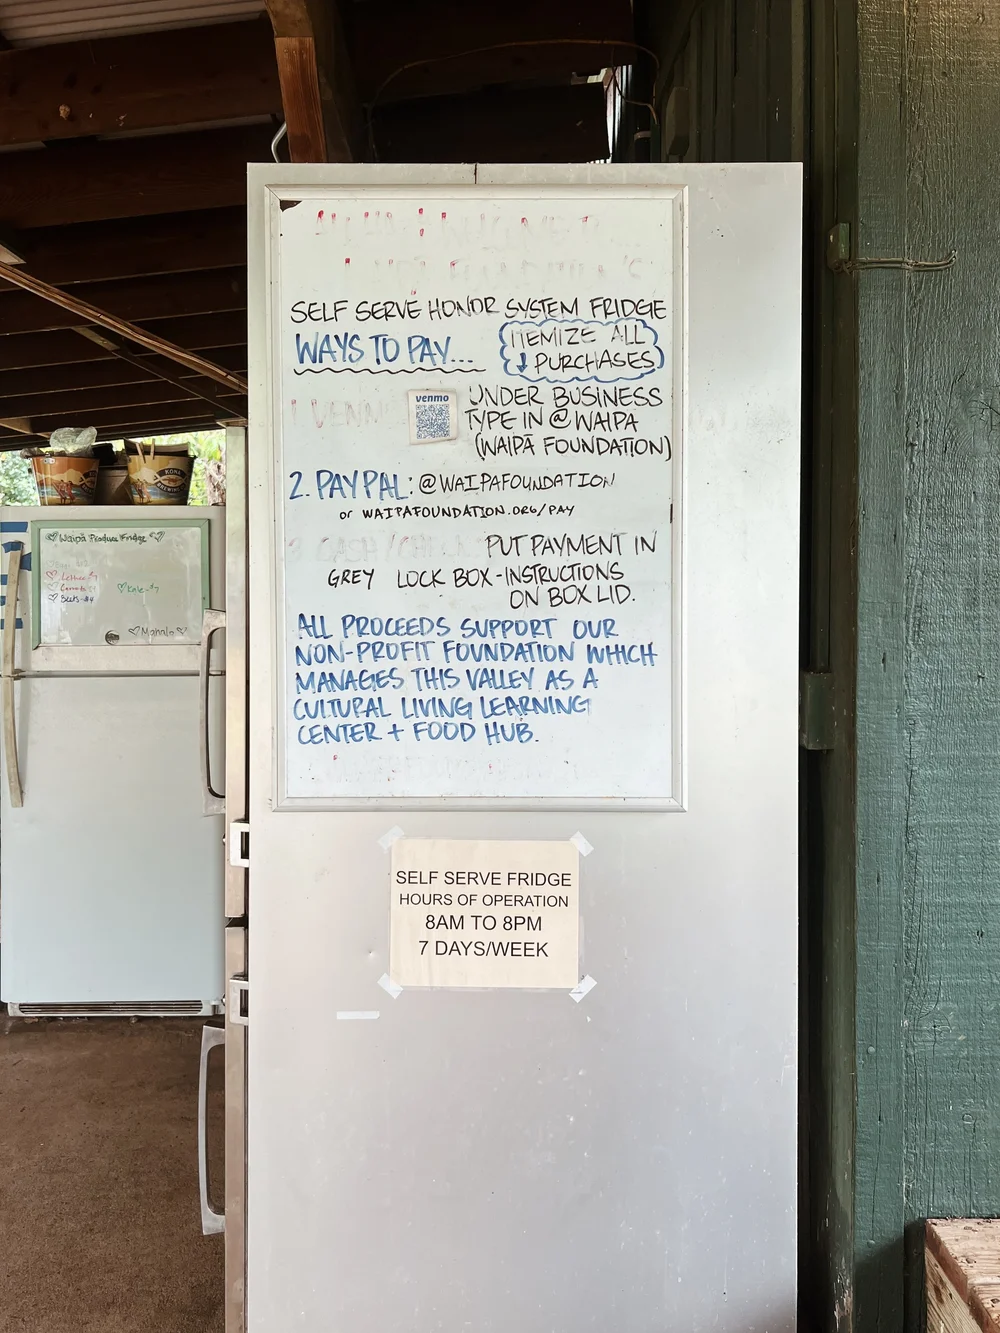 SELF SERVE HONOR SYSTEM FRIDGE
WAYS TO PAY...
ITEMIZE ALL
↓ PURCHASES
1. VENMO
venmo
UNDER BUSINESS
TYPE IN @WAIPA
(WAIPĀ FOUNDATION)
2. PAYPAL: @WAIPAFOUNDATION
or WAIPAFOUNDATION.ORG/PAY
3. CASH/CHECK PUT PAYMENT IN
GREY LOCK BOX-INSTRUCTIONS
ON BOX LID.
ALL PROCEEDS SUPPORT OUR
NON-PROFIT FOUNDATION WHICH
MANAGES THIS VALLEY AS A
CULTURAL LIVING LEARNING
CENTER + FOOD HUB.
SELF SERVE FRIDGE
HOURS OF OPERATION
8AM TO 8PM
7 DAYS/WEEK
Waipā Produce Fridge
Lettuce
Kale $7
Beets
Mahalo
KONA
BREWING